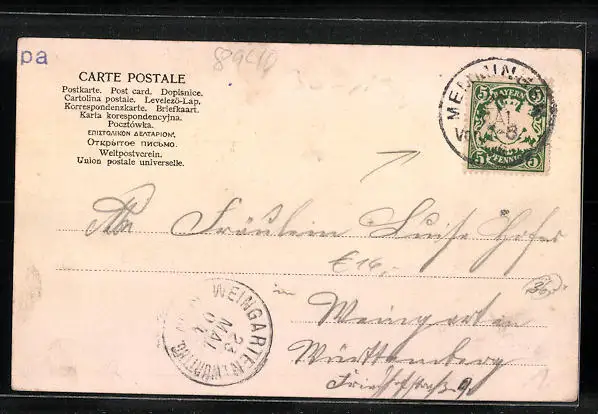 pa
CARTE POSTALE
Postkarte. Post card. Dopisnice.
Cartolina postale. Levelező-Lap.
Korrespondenzkarte. Briefkaart.
Karta korespondencyjna.
Pocztówka.
ΕΠΙΣΤΟΛΙΚΟΝ ΔΕΛΤΑΡΙΟΝ.
Открытое письмо.
Weltpostverein.
Union postale universelle.
5 BAYERN 5
5 PFENNIG 5
MAI
Fräulein Luise Hofer
€16,-
in
Weingarten
Württemberg
WEINGARTEN (WÜRTTBG)
23
MAI